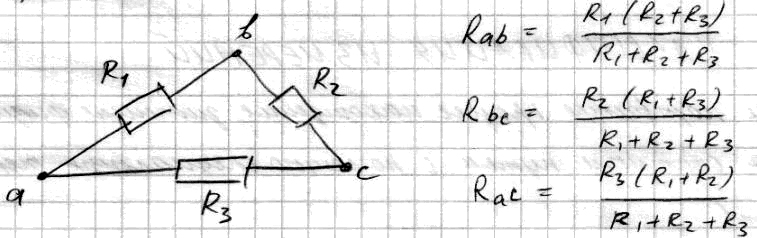 b
R1
R2
a
c
R3
Rab = R1 (R2+R3) / R1+R2+R3
Rbc = R2 (R1+R3) / R1+R2+R3
Rac = R3 (R1+R2) / R1+R2+R3